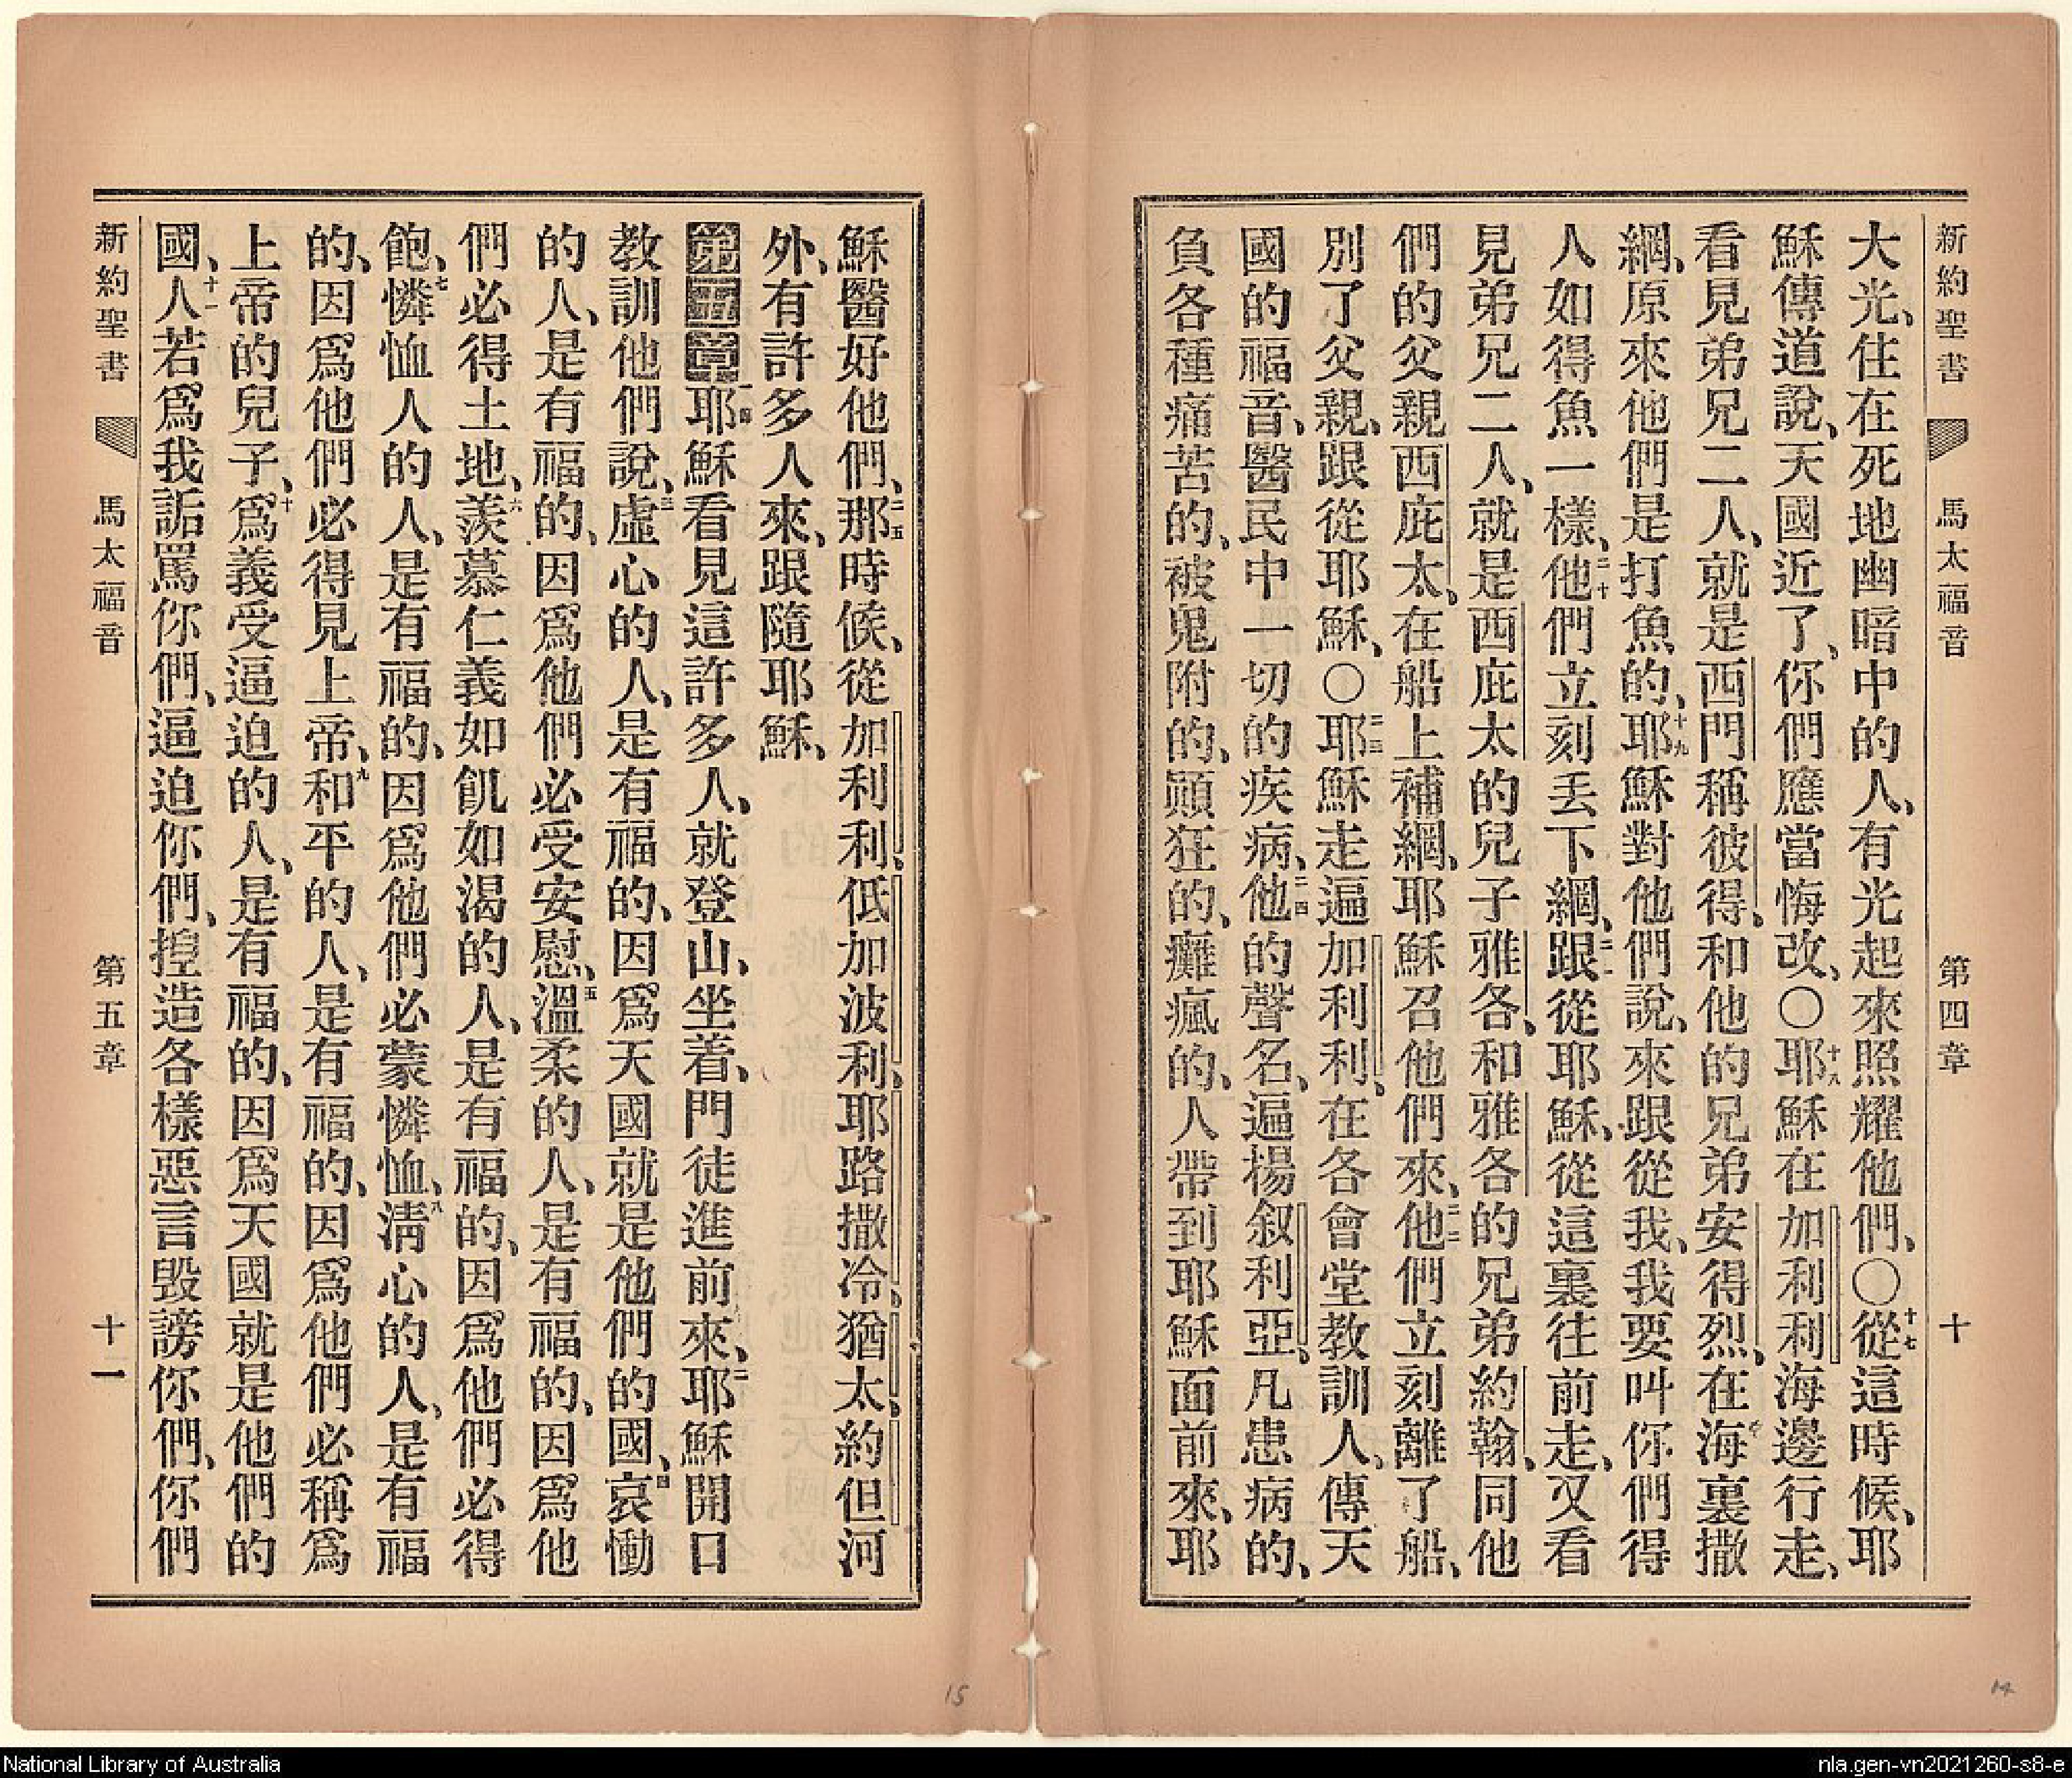 新約聖書 馬太福音 第四章 十
大光、住在死地幽暗中的人、有光起來照耀他們、○十七從這時候、耶
穌傳道說、天國近了、你們應當悔改、○十八耶穌在加利利海邊行走、
看見弟兄二人、就是西門稱彼得、和他的兄弟安得烈、在海裏撒
網、原來他們是打魚的、十九耶穌對他們說、來跟從我、我要叫你們得
人如得魚一樣、二十他們立刻丟下網、跟從耶穌、二一從這裏往前走、又看
見弟兄二人、就是西庇太的兒子雅各、和雅各的兄弟約翰、同他
們的父親西庇太、在船上補網、耶穌召他們來、二二他們立刻離了船、
別了父親、跟從耶穌、○二三耶穌走遍加利利、在各會堂教訓人、傳天
國的福音、醫民中一切的疾病、二四他的聲名、遍揚叙利亞、凡患病的、
負各種痛苦的、被鬼附的、顚狂的、癱瘋的、人帶到耶穌面前來、耶
穌醫好他們、二五那時候、從加利利、低加波利、耶路撒冷、猶太、約但河
外、有許多人來、跟隨耶穌、
第五章一耶穌看見這許多人、就登山、坐着、門徒進前來、二耶穌開口
教訓他們說、三虛心的人、是有福的、因爲天國就是他們的國、四哀慟
的人、是有福的、因爲他們必受安慰、五溫柔的人、是有福的、因爲他
們必得土地、六羨慕仁義如飢如渴的人、是有福的、因爲他們必得
飽、七憐恤人的人、是有福的、因爲他們必蒙憐恤、八淸心的人、是有福
的、因爲他們必得見上帝、九和平的人、是有福的、因爲他們必稱爲
上帝的兒子、十爲義受逼迫的人、是有福的、因爲天國就是他們的
國、十一人若爲我詬罵你們、逼迫你們、揑造各樣惡言毀謗你們、你們
新約聖書 馬太福音 第五章 十一
14
15
National Library of Australia
nla.gen-vn2021260-s8-e